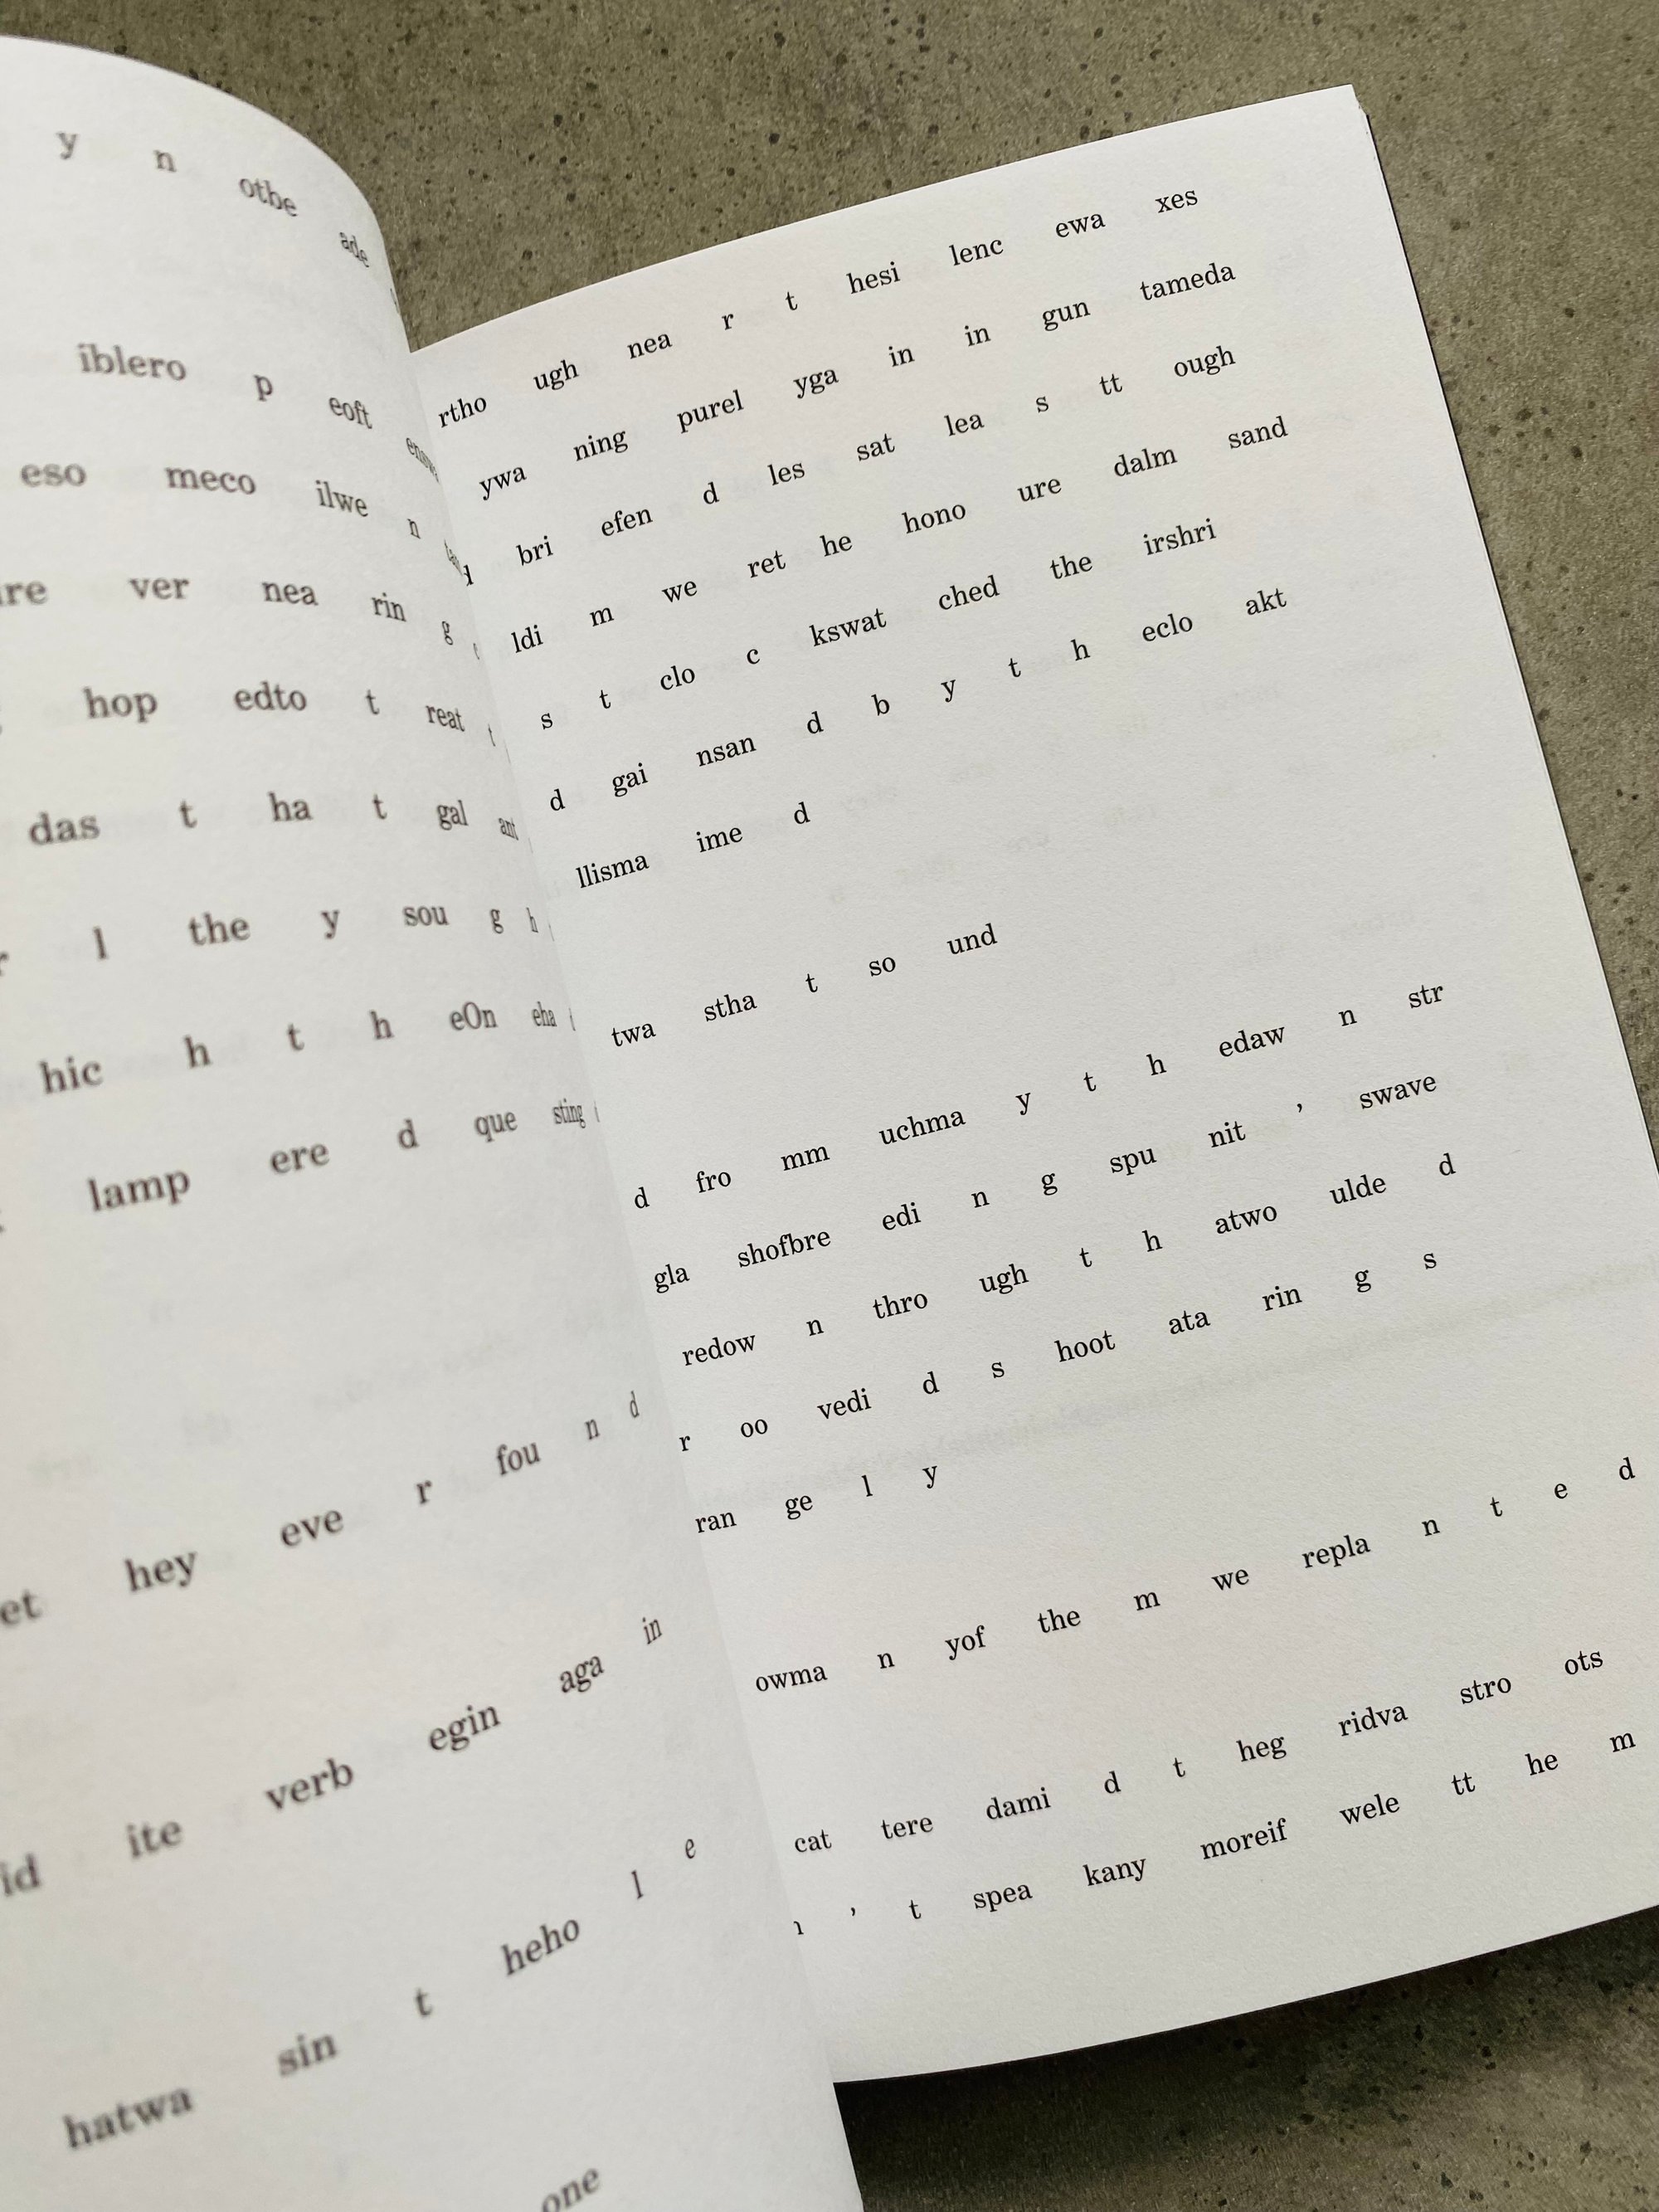 y n otbe ade
iblero p eoft
eso meco ilwe n
re ver nea rin g
hop edto t reat t
das t ha t gal ant
l the y sou g h
hic h t h eOn eha
lamp ere d que sting
et hey eve r fou n d
id ite verb egin aga in
hatwa sin t heho l e
one
rtho ugh nea r t hesi lenc ewa xes
ywa ning purel yga in in gun tameda
bri efen d les sat lea s tt ough
ldi m we ret he hono ure dalm sand
s t clo c kswat ched the irshri
d gai nsan d b y t h eclo akt
llisma ime d
twa stha t so und
d fro mm uchma y t h edaw n str
gla shofbre edi n g spu nit ' swave
redow n thro ugh t h atwo ulde d
r oo vedi d s hoot ata rin g s
ran ge l y
owma n yof the m we repla n t e d
cat tere dami d t heg ridva stro ots
' t spea kany moreif wele tt he m